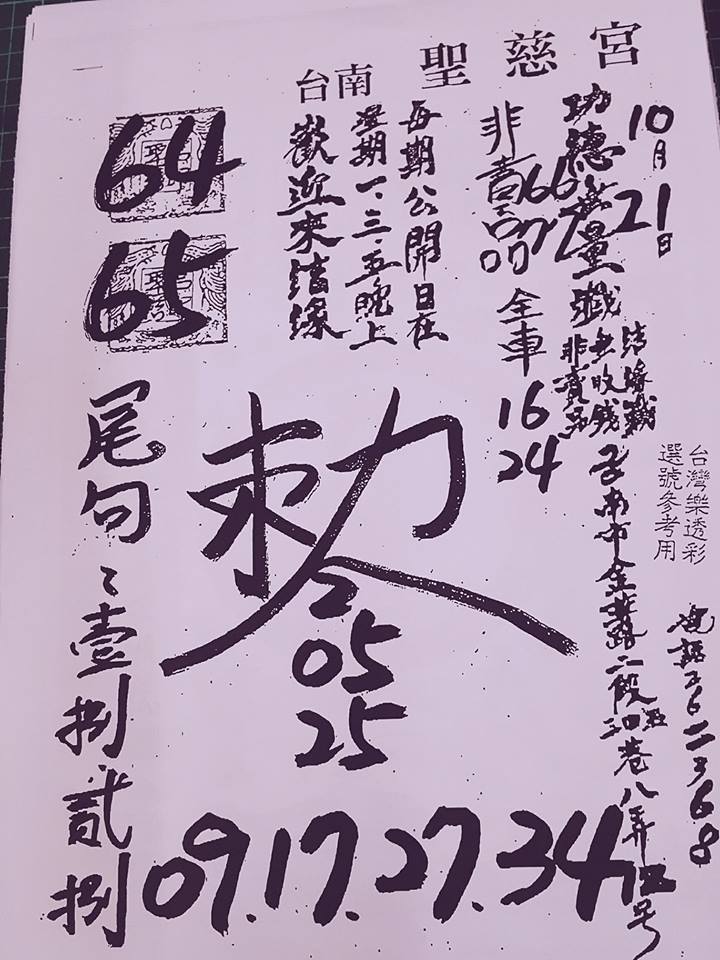 台南 聖慈宮
10月21日
功德無量
結緣
無收錢
非賣品
非賣品
66
全車
16
24
每期公開日在
星期一、三、五晚上
歡迎來結緣
64
65
尾句
壹
捌
貳
捌
05
25
09.17.27.34
台灣樂透彩
選號參考用
南市金華路二段
巷八弄
号
電話